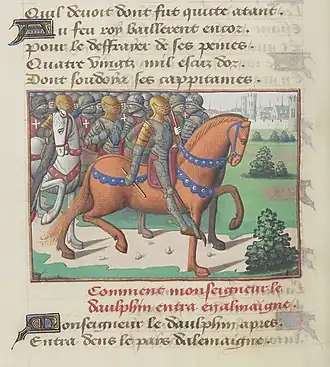 Quil devoit dont fut quitte atant.
Au feu roy baillerent encor.
Pour le deffrayer de ses peines
Quatre vingtz mil escuz dor.
Dont souldoya ses cappitaines.
Comment monseigneur le
daulphin entra en almaigne.
Monseigneur le daulphin apres.
Entra dens le pays dalemaigne.